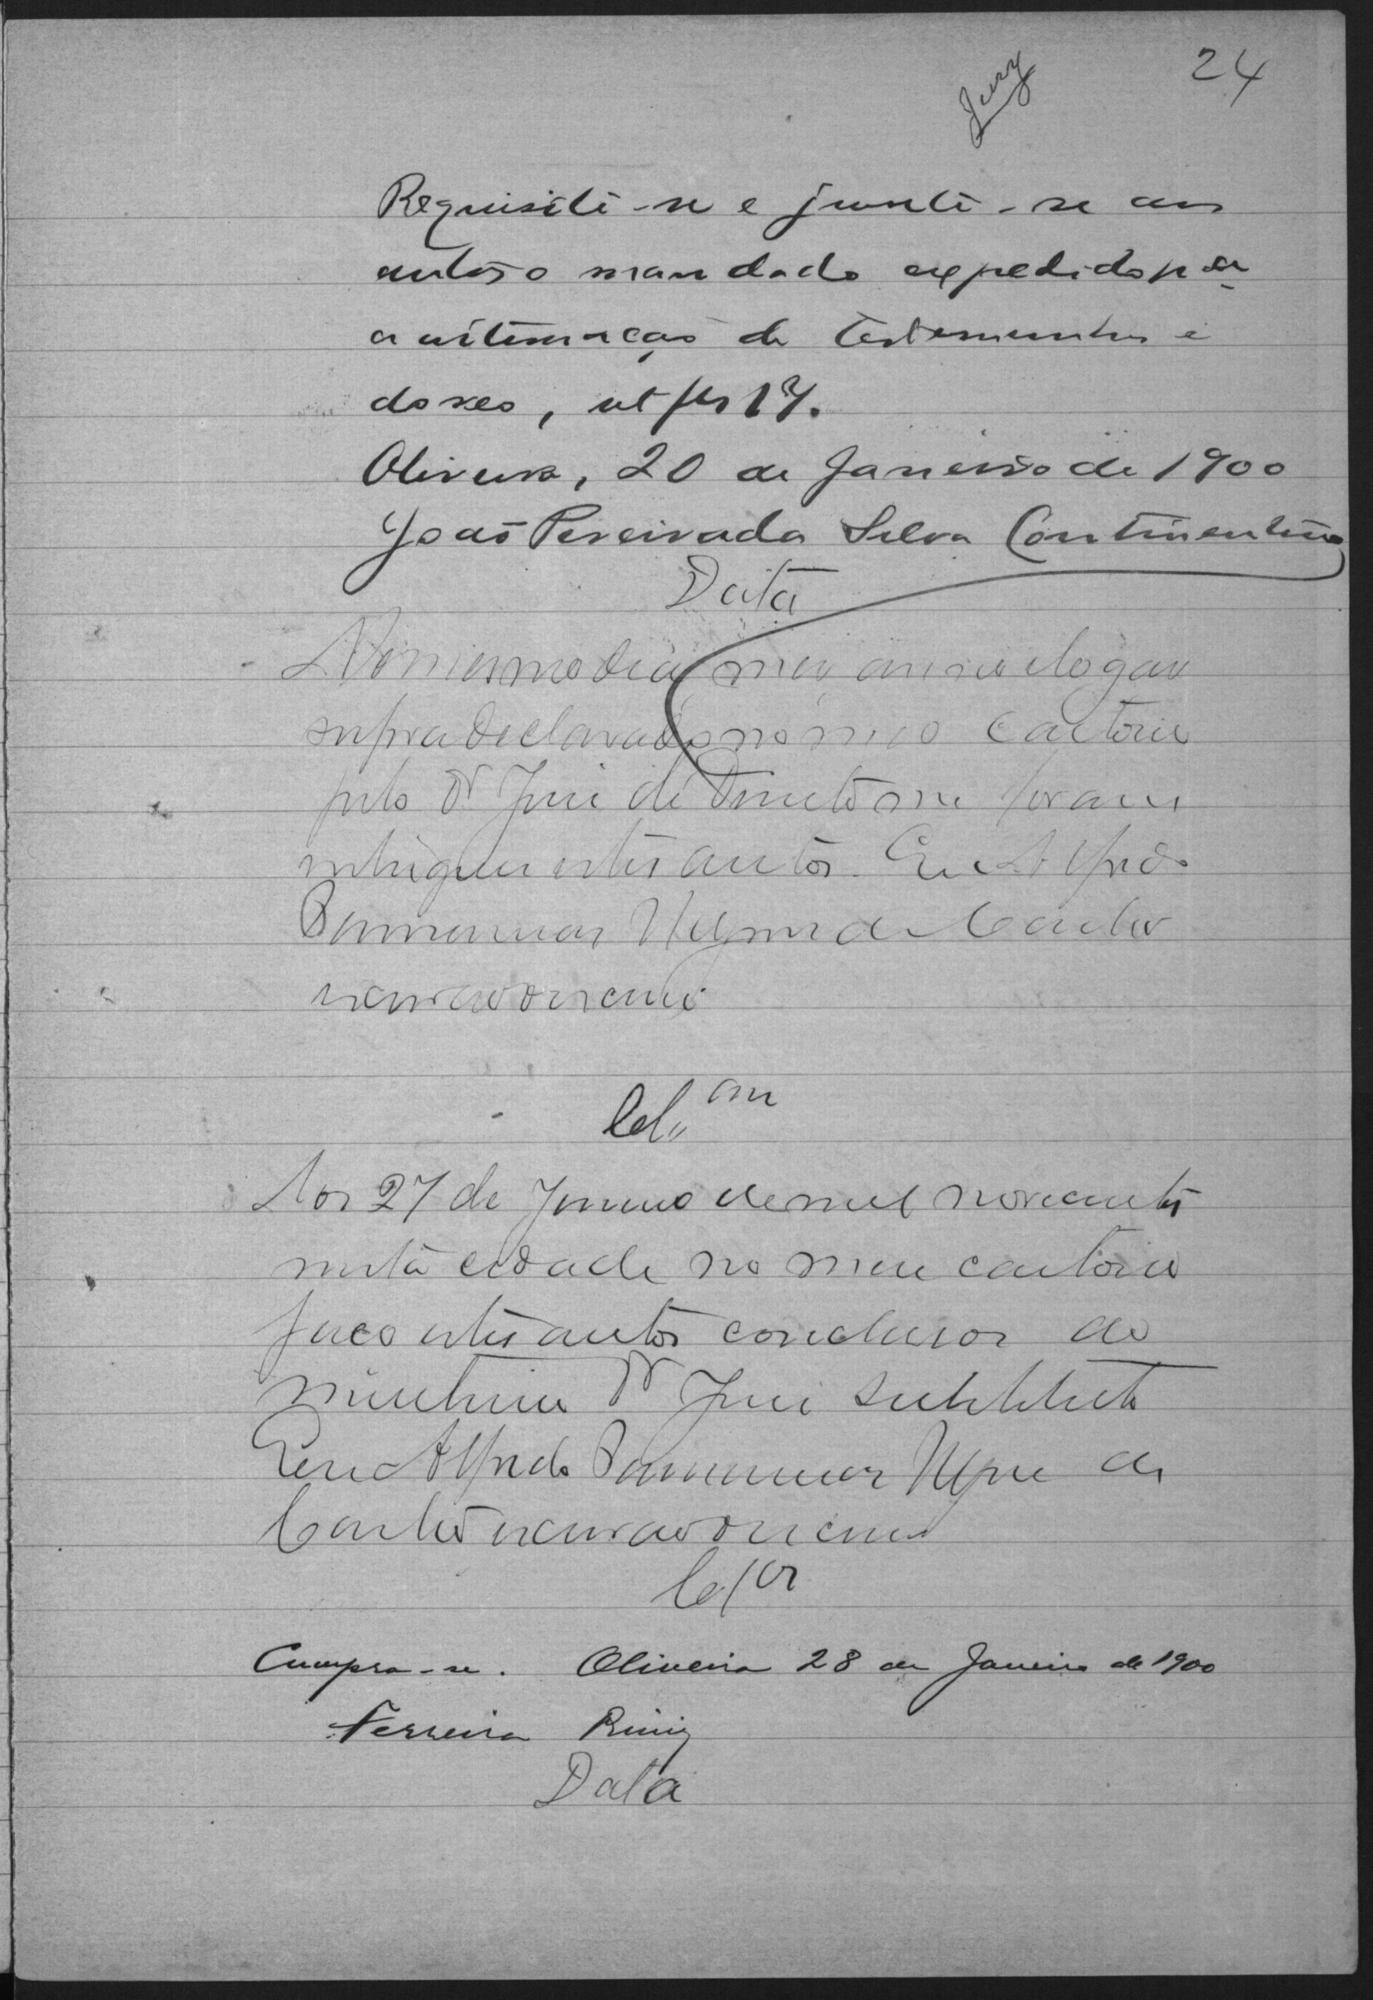 24
Jury
Requisite-se e junte-se aos
autos o mandado expedido para
a intimação de testemunhas e
do reo, ut fls 17.
Oliveira, 20 de Janeiro de 1900
João Pereira da Silva Continentino
Data
No mesmo dia mez anno e logar
supra declarado no meu cartorio
pelo Dr Juiz de Direito me foram
entregues estes autos. Eu Alfredo
de Castro
escrivão o escrevi
Cls.am
Aos 27 de Janeiro de mil novecentos
nesta cidade no meu cartorio
faço estes autos conclusos ao
Dr Juiz Substituto
Eu Alfredo de
Castro escrivão o escrevi
Cls.os
Cumpra-se. Oliveira 28 de Janeiro de 1900
Ferreira Diniz
Data